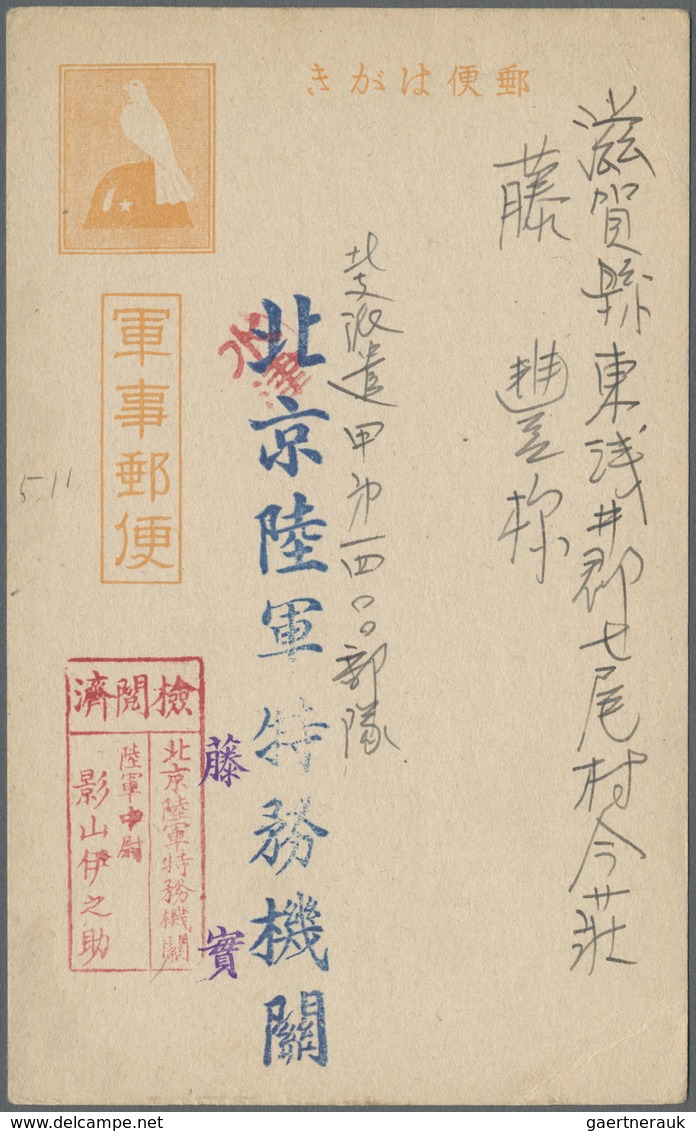 郵便はがき
軍事郵便
滋賀縣東浅井郡七尾村今荘
藤豊様
北支派遣甲第一四〇〇部隊
北京陸軍特務機關
藤實
検閲濟
北京陸軍特務機關
陸軍中尉
影山伊之助
5.11
gaertnerauk